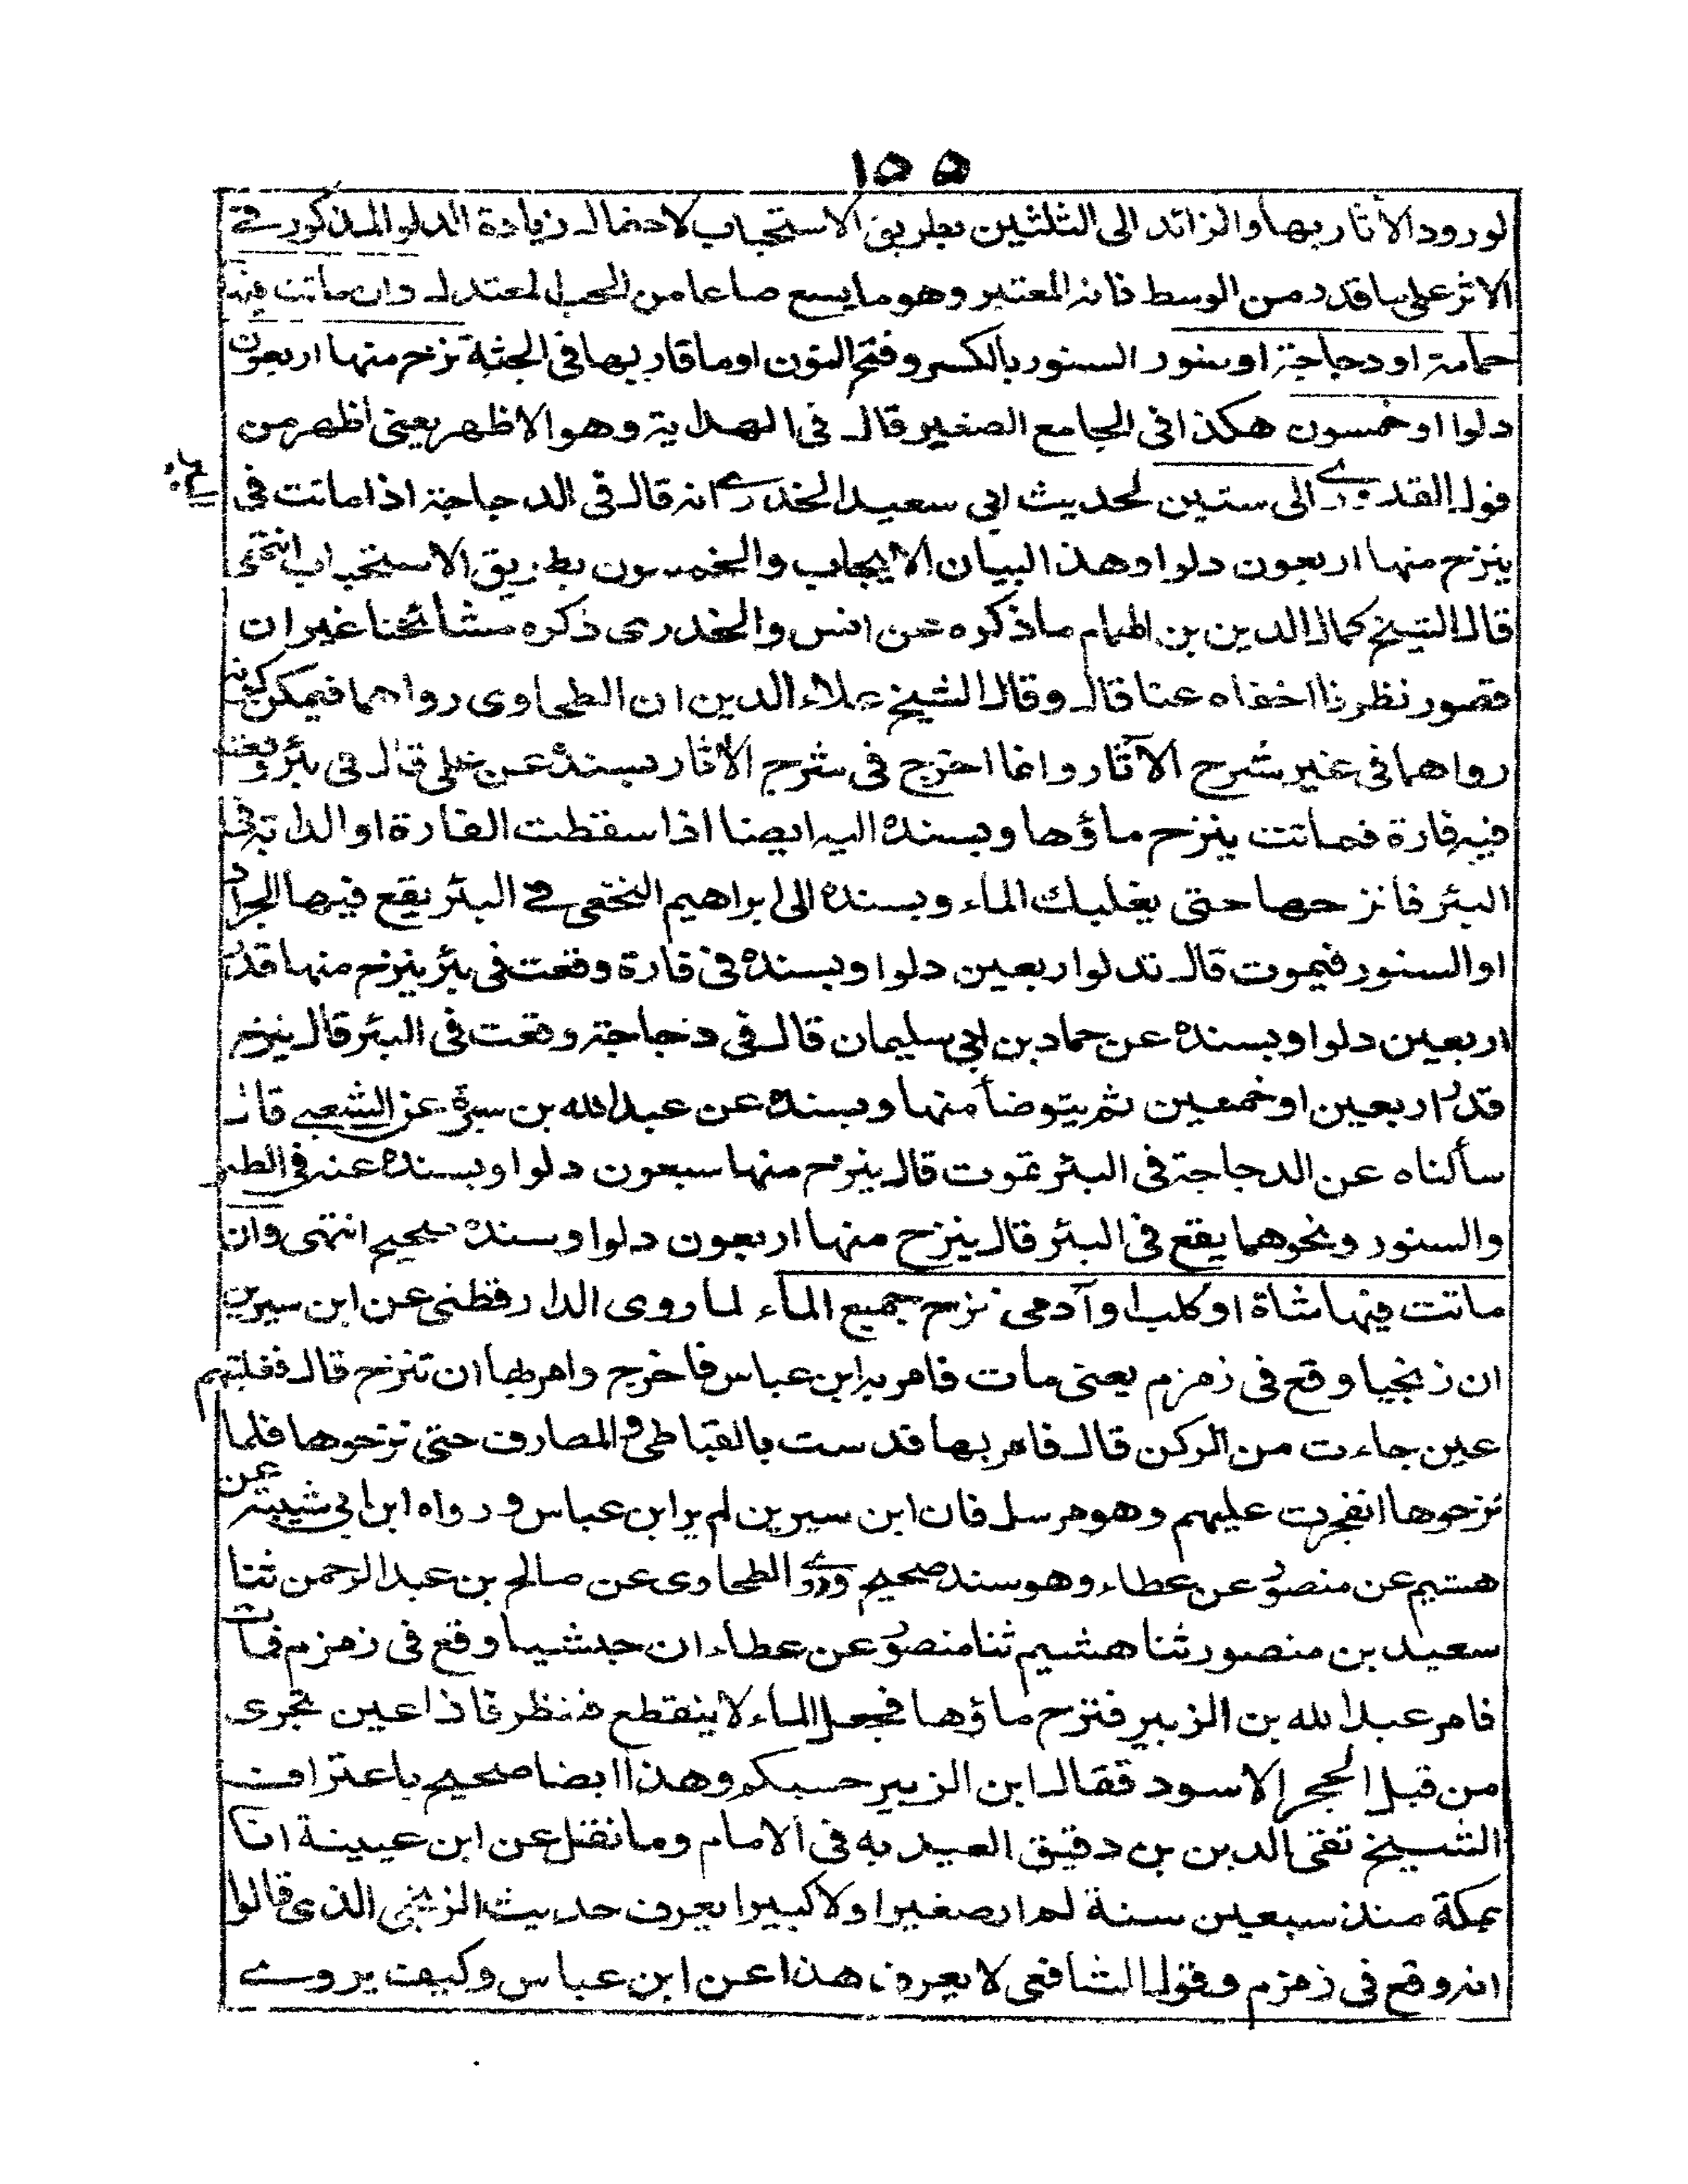 ١٥٥
لورود الأثار بها والزائد الى الثلثين بطريق الاستحباب لاحتمال زيادة الدلو المذكور في
الاثر على ما قدر من الوسط فانه المعتبر وهو ما يسع صاعا من الحب المعتدل وان ماتت فيها
حمامة او دجاجة او سنور السنور بالكسر وفتح النون او ما قاربها فى الجثة نزح منها اربعون
دلوا او خمسون هكذا فى الجامع الصغير قال فى الهداية وهو الاظهر يعنى اظهر من
قول القدورے الى ستين لحديث ابي سعيد الخدرے انه قال فى الدجاجة اذا ماتت فى
ينزح منها اربعون دلوا وهذا البيان الايجاب والخمسون بطريق الاستحباب انتهى
قال الشيخ كمال الدين بن الهمام ما ذكره عن انس والخدرى ذكره مشائخنا غير ان
قصور نظرنا اخفاه عنا قال وقال الشيخ علاء الدين ان الطحاوى رواهما فيمكن كونه
رواهما فى غير شرح الآثار وانما اخرج فى شرح الأثار بسنده عن على قال فى بئر وقعت
فيه فارة فماتت ينزح ماؤها وبسنده اليه ايضا اذا سقطت الفارة او الدابة فى
البئر فانزحها حتى يغلبك الماء وبسنده الى ابراهيم النخعى فے البئر يقع فيها الجراد
او السنور فيموت قال تدلوا اربعين دلوا وبسنده فى فارة وقعت فى بئر ينزح منها قدر
اربعين دلوا وبسنده عن حماد بن ابي سليمان قال فى دجاجة وقعت فى البئر قال ينزح
قدر اربعين او خمسين ثم يتوضأ منها وبسنده عن عبد الله بن سبرة عن الشعبے قال
سألناه عن الدجاجة فى البئر تموت قال ينزح منها سبعون دلوا وبسنده عنه فى الطير
والسنور ونحوهما يقع فى البئر قال ينزح منها اربعون دلوا وسنده صحيح انتهى وان
ماتت فيها شاة او كلب او آدمى نزح جميع الماء لما روى الدارقطنى عن ابن سيرين
ان زنجيا وقع فى زمزم يعنى مات فامر به ابن عباس فاخرج وامر بها ان تنزح قال فغلبتهم
عين جاءت من الركن قال فامر بها فدست بالقباطى والمصارف حتى نزحوها فلما
نزحوها انفجرت عليهم وهو مرسل فان ابن سيرين لم ير ابن عباس ورواه ابن ابي شيبة عن
هشيم عن منصور عن عطاء وهو سند صحيح وروے الطحاوى عن صالح بن عبد الرحمن ثنا
سعيد بن منصور ثنا هشيم ثنا منصور عن عطاء ان حبشيا وقع فى زمزم فمات
فامر عبد الله بن الزبير فنزح ماؤها فجعل الماء لا ينقطع فنظر فاذا عين تجرى
من قبل الحجر الاسود فقال ابن الزبير حسبكم وهذا ايضا صحيح باعتراف
الشيخ تقى الدين بن دقيق العيد به فى الامام وما نقل عن ابن عيينة انا
بمكة منذ سبعين سنة لم ار صغيرا ولا كبيرا يعرف حديث الزنجى الذى قالوا
انه وقع فى زمزم وقول الشافعى لا يعرف هذا عن ابن عباس وكيف يروے